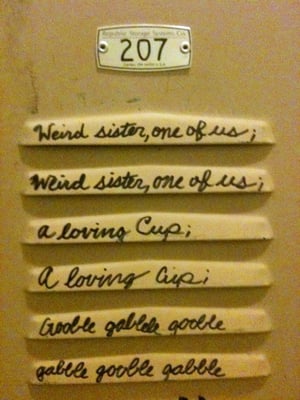 Republic Storage Systems Co.
207
Weird sister, one of us;
Weird sister, one of us;
a loving Cup;
A loving Cup;
Gooble gabble gooble
gabble gooble gabble